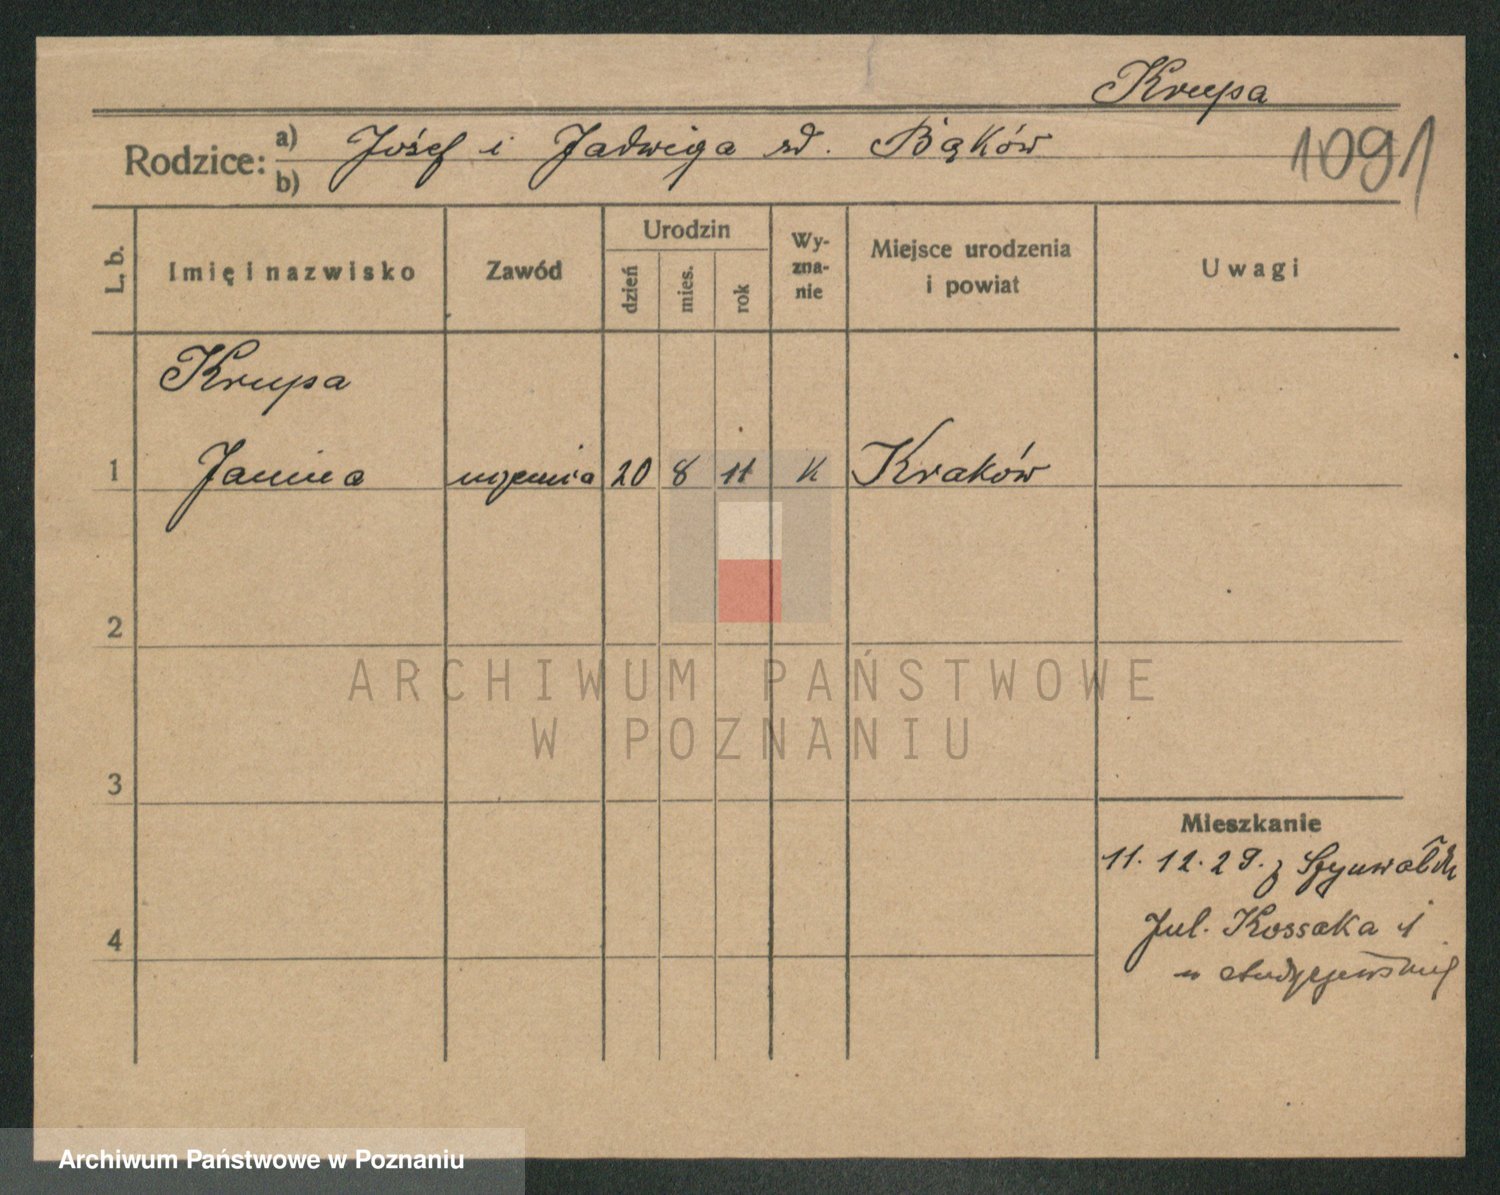 Krupa
Rodzice: a) Józef i Jadwiga zd. Bąków
b)
1091
L. b.
Imię i nazwisko
Zawód
Urodzin
dzień
mies.
rok
Wy-
zna-
nie
Miejsce urodzenia
i powiat
Uwagi
Krupa
1 Janina uczenia 20 8 11 K Kraków
2
3
4
ARCHIWUM PAŃSTWOWE
W POZNANIU
Mieszkanie
11. 12. 29. z
Jul. Kossaka 1
u
Archiwum Państwowe w Poznaniu